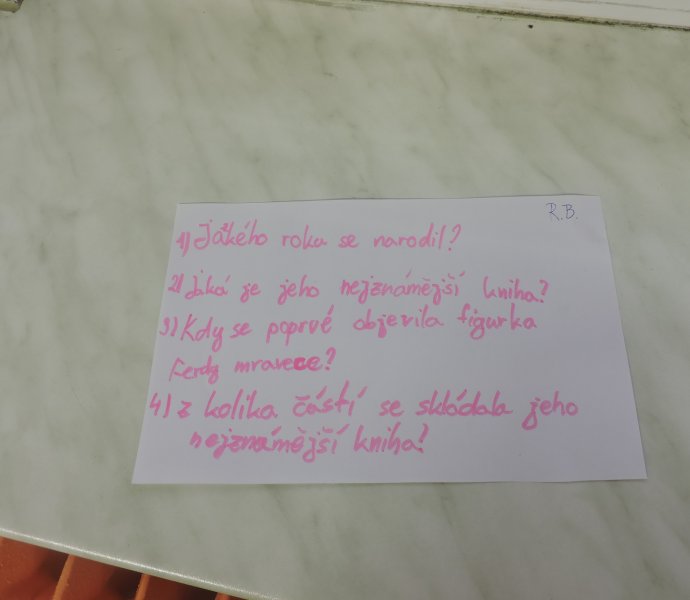 R.B.
1) Jakého roku se narodil?
2) Jaká je jeho nejznámější kniha?
3) Kdy se poprvé objevila figurka
Ferdy mravence?
4) z kolika částí se skládala jeho
nejznámější kniha?